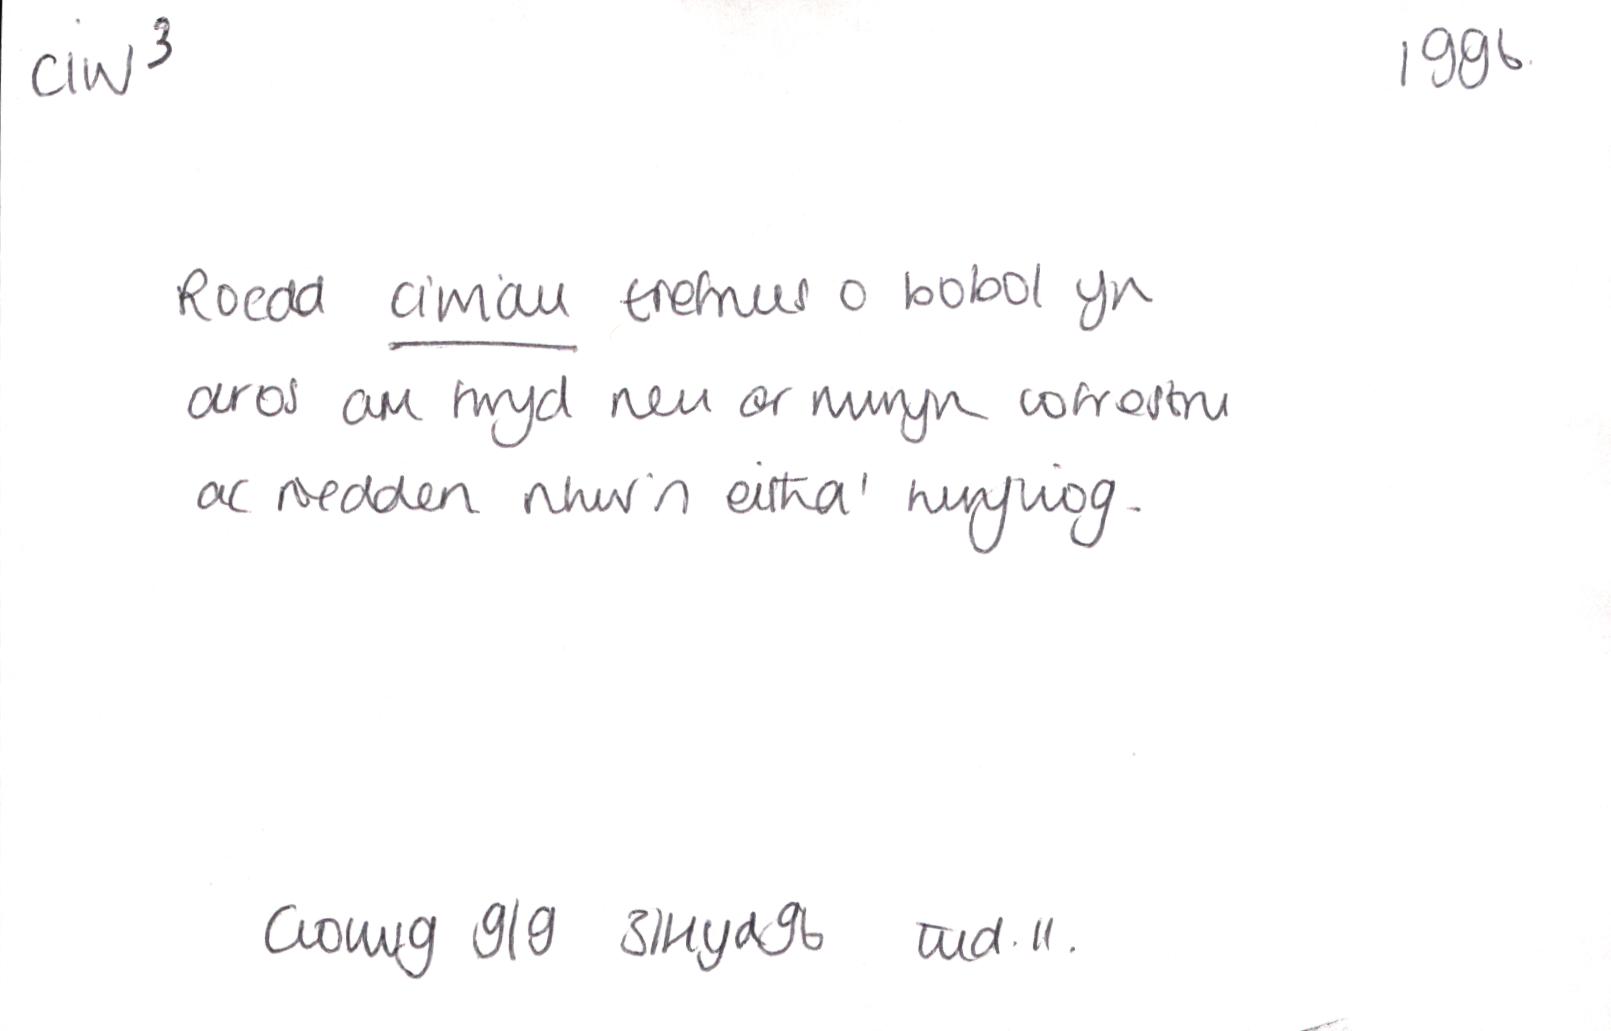 ciw³ 1996.
Roedd ciwiau trefnus o bobol yn
aros am fwyd neu er mwyn cofrestru
ac roedden nhw'n eitha' hwyliog.
Golwg 9/9 31Hyd96 tud. 11.